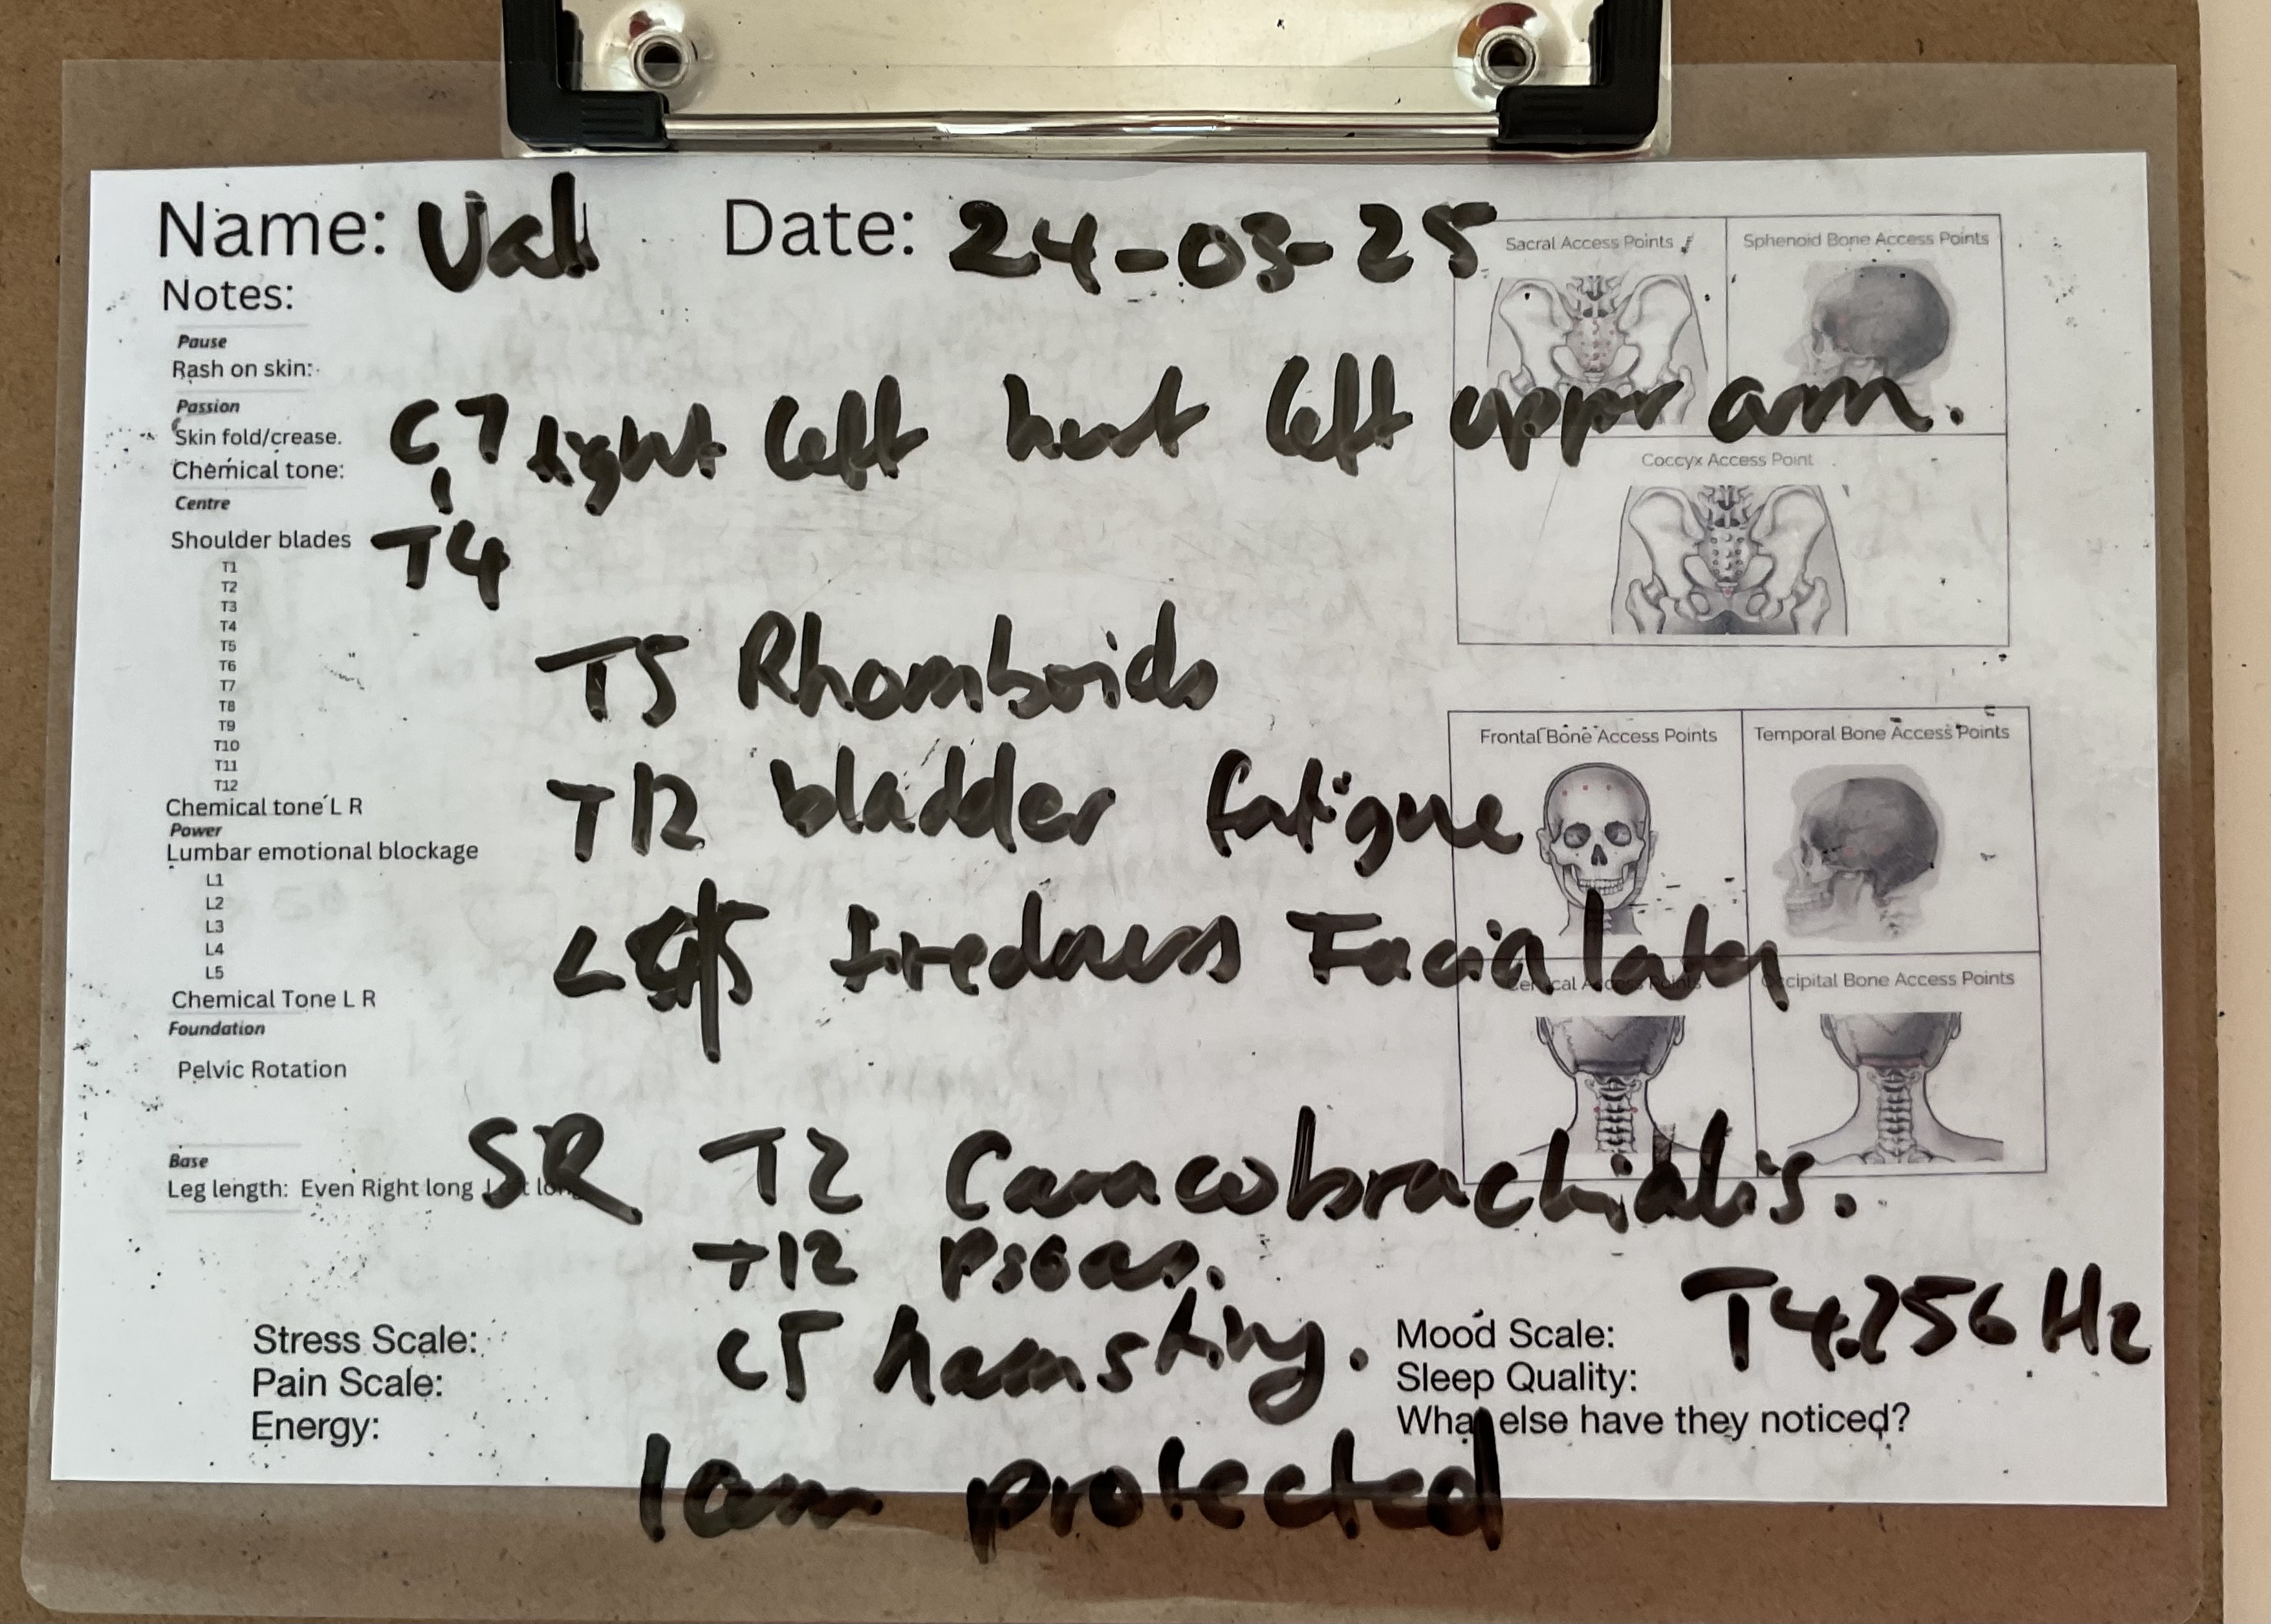 Name: Val Date: 24-03-25
Notes:
Pause
Rash on skin:
Passion
Skin fold/crease.
C7 tight left heat left uppr arm.
Chemical tone:
Centre
Shoulder blades T4
T1
T2
T3
T4
T5
T6
T7
T8
T9
T10
T11
T12
T5 Rhomboids
T12 bladder fatigue
Chemical tone L R
Power
Lumbar emotional blockage
L1
L2
L3
L4
L5
tiredness Facia
Chemical Tone L R
Foundation
Pelvic Rotation
Base
Leg length: Even Right long Left long
SR T2 Caracobrachialis.
T12 Psoas.
C5 hamstring.
T4 256 Hz
Stress Scale:
Pain Scale:
Energy:
Mood Scale:
Sleep Quality:
What else have they noticed?
I am protected
Sacral Access Points
Sphenoid Bone Access Points
Coccyx Access Point
Frontal Bone Access Points
Temporal Bone Access Points
Cervical Access Points
Occipital Bone Access Points